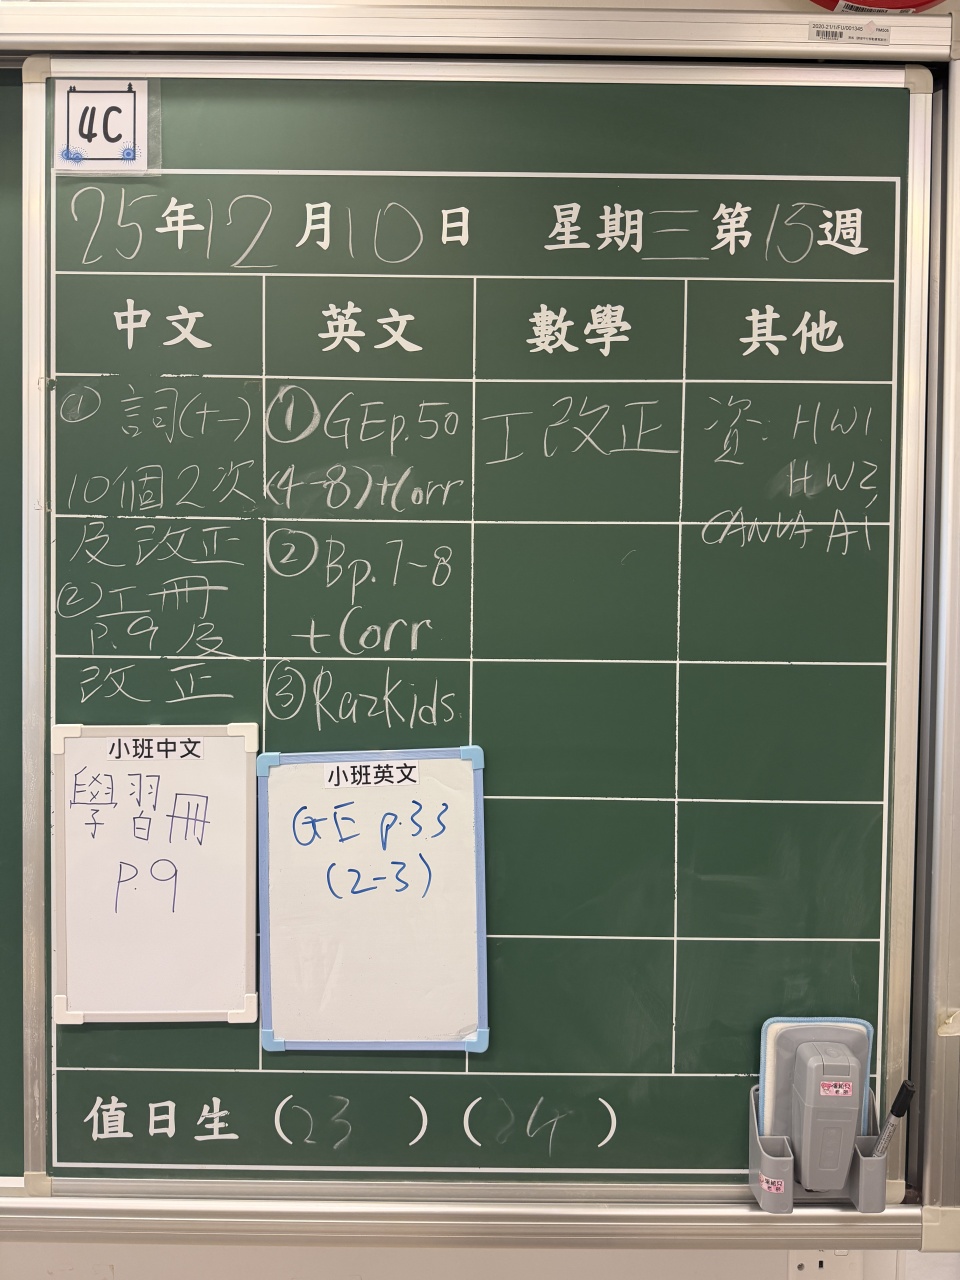 2020-21/1/FU/001345
RM305
4C
25年12月10日 星期三第15週
中文
英文
數學
其他
① 詞(十一)
10個2次
及改正
② 工冊
P.9 及
改正
① GEp.50
(4-8)+Corr
② Bp.7-8
+Corr
③ RazKids
工改正
資: HW1
HW2,
CANVA AI
小班中文
學習冊
P.9
小班英文
GE p.33
(2-3)
值日生 (23) (24)